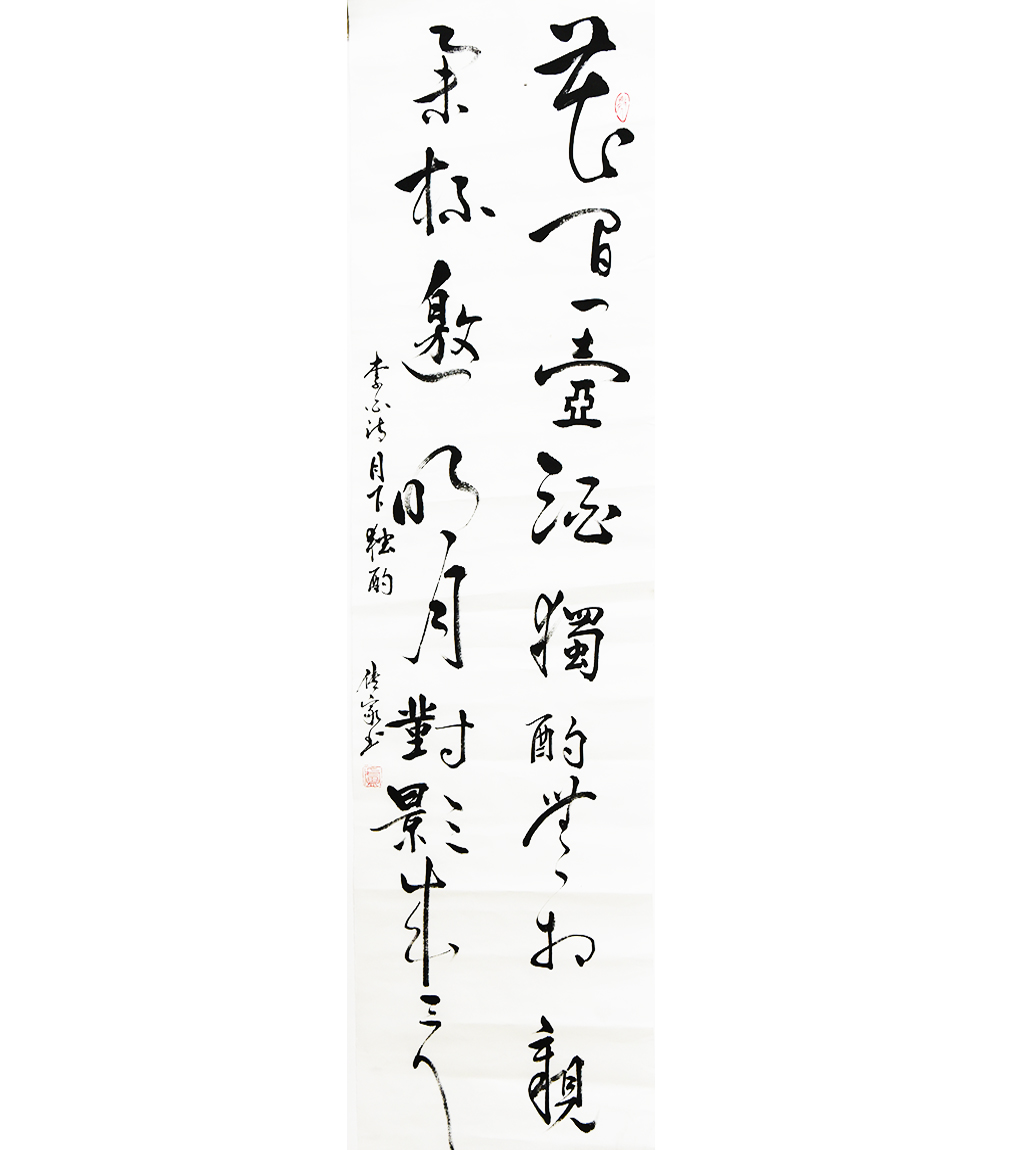 花間一壺酒獨酌無相親
舉杯邀明月對影成三人
李白詩月下独酌
传家书